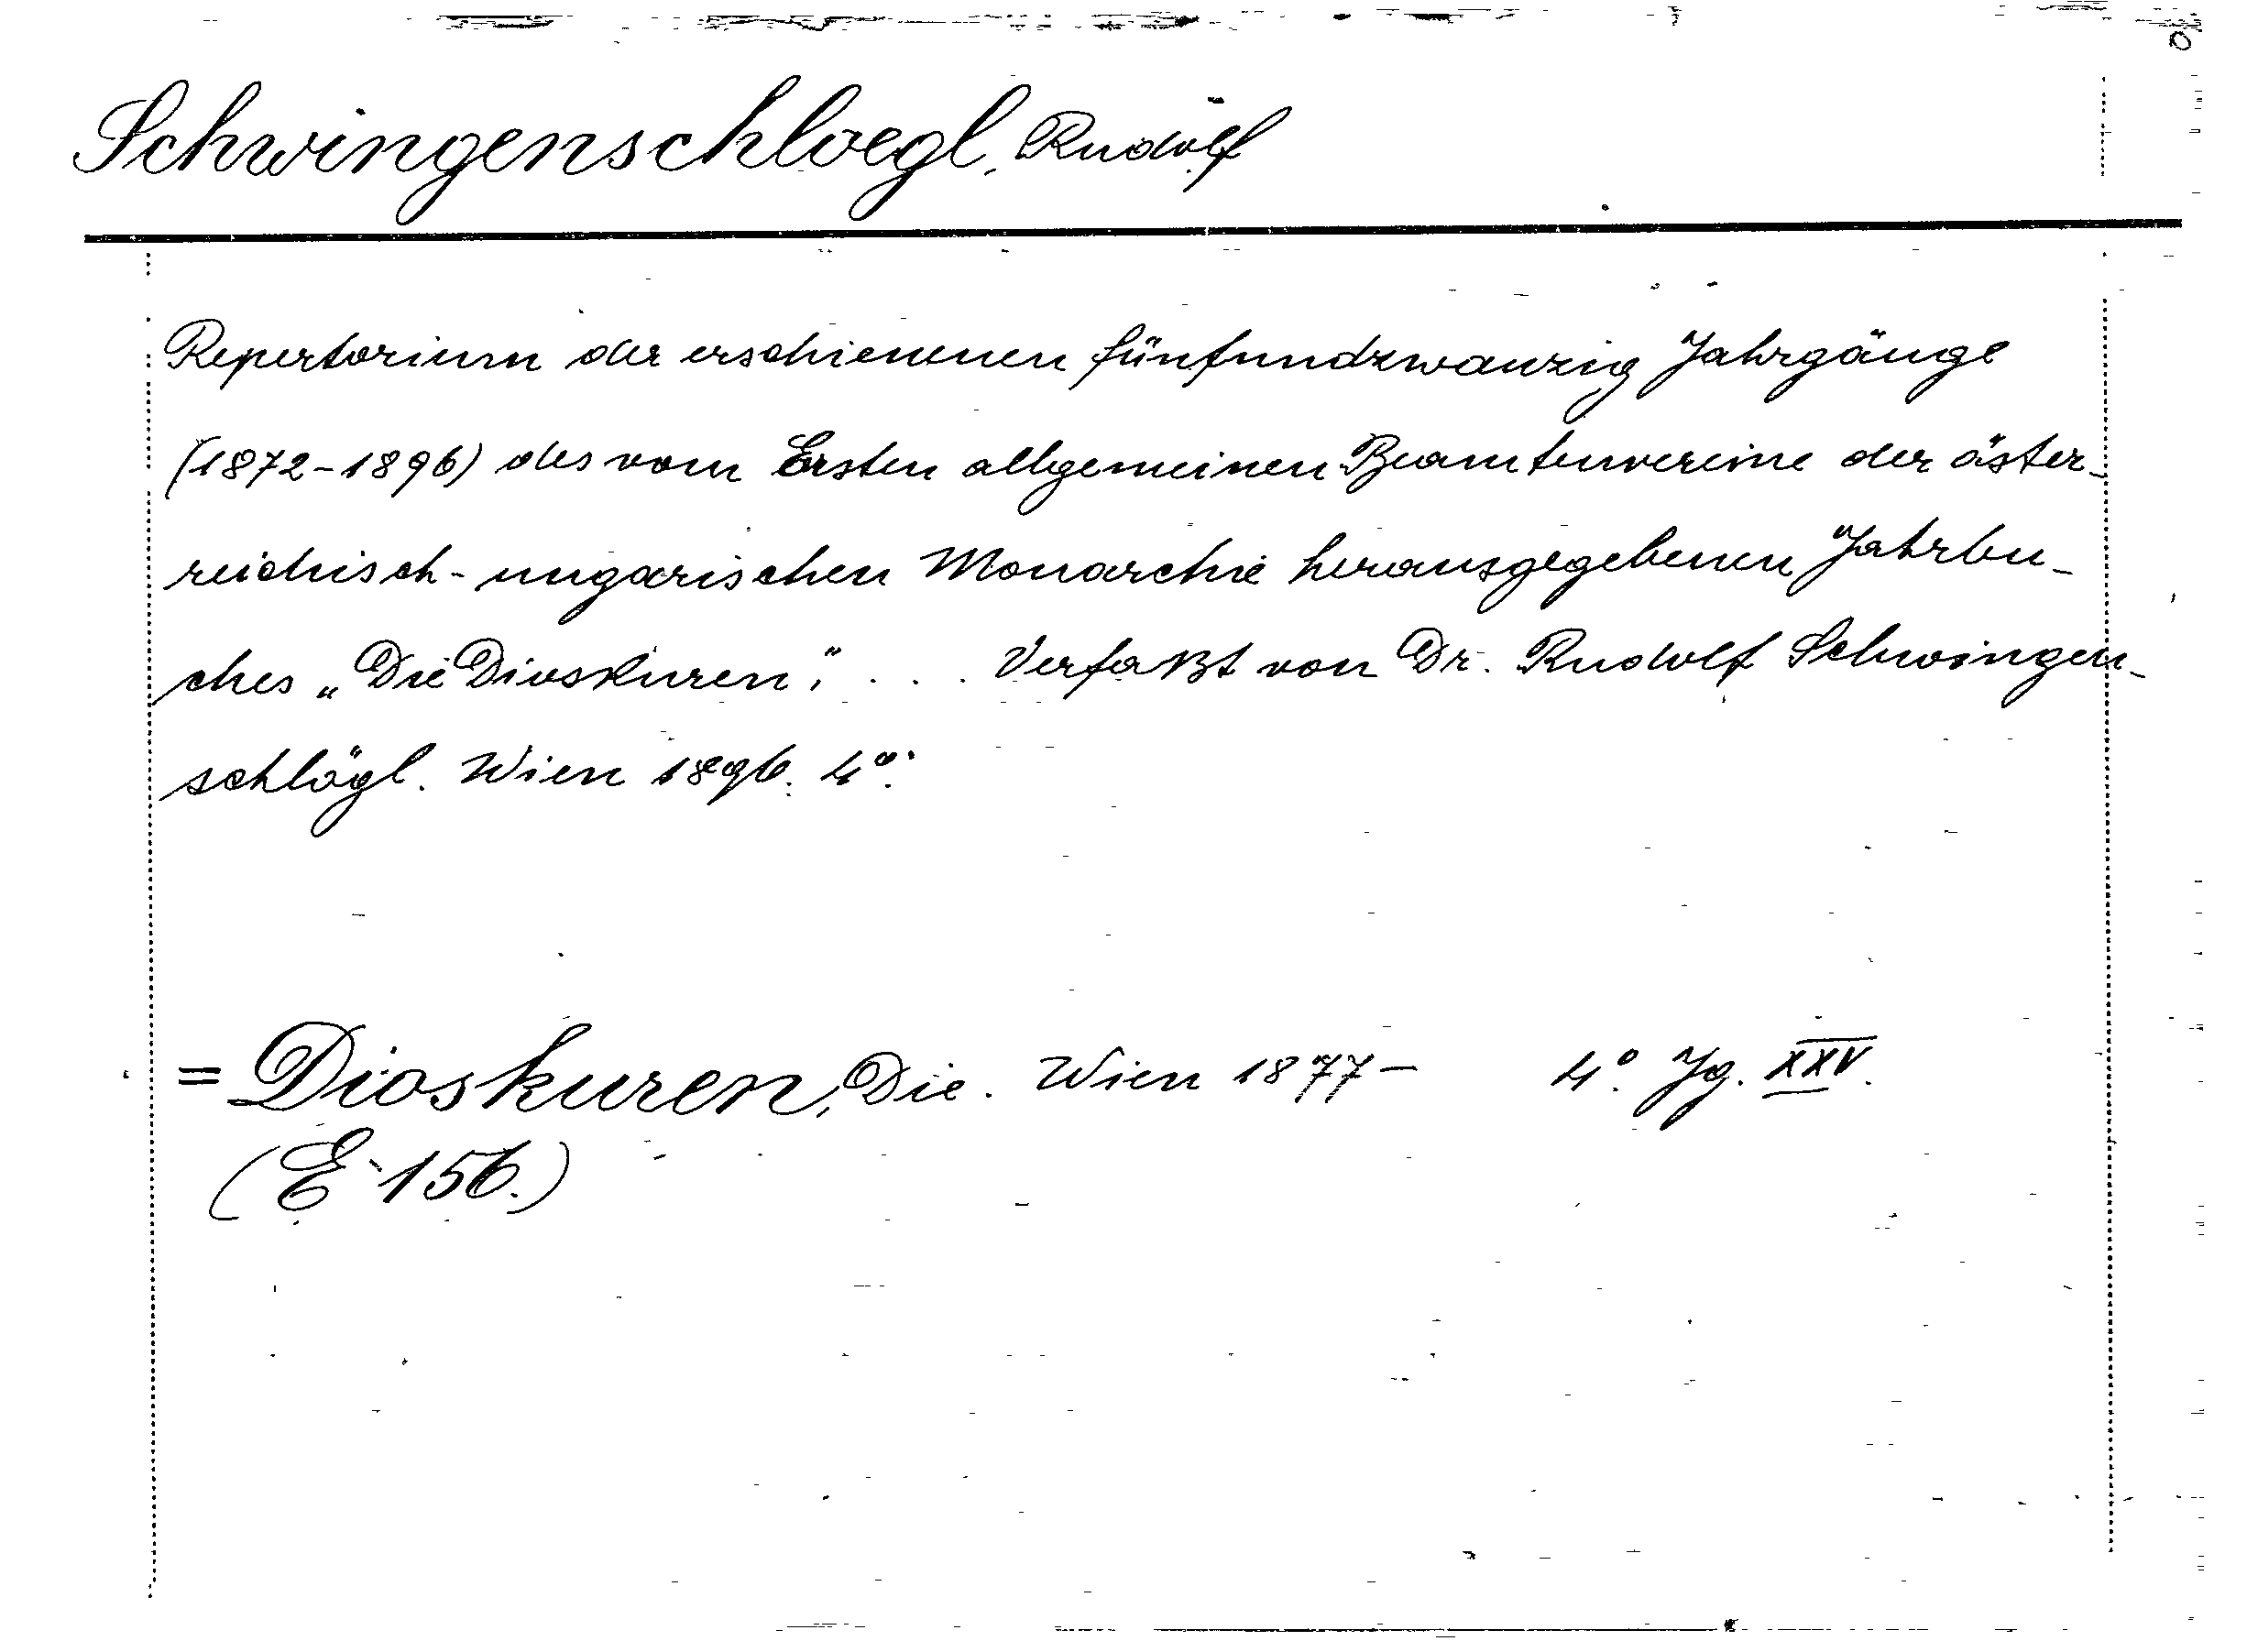 Schwingenschloegl, Rudolf
Repertorium der erschienenen fünfundzwanzig Jahrgänge
(1872-1896) des vom Ersten allgemeinen Beamtenvereine der öster-
reichisch-ungarischen Monarchie herausgegebenen Jahrbu-
ches „Die Dioskuren“, . . . Verfaßt von Dr. Rudolf Schwingen-
schlögl. Wien 1896. 4°.
= Dioskuren, Die. Wien 1877- 4°. Jg. XXV.
(E-156.)